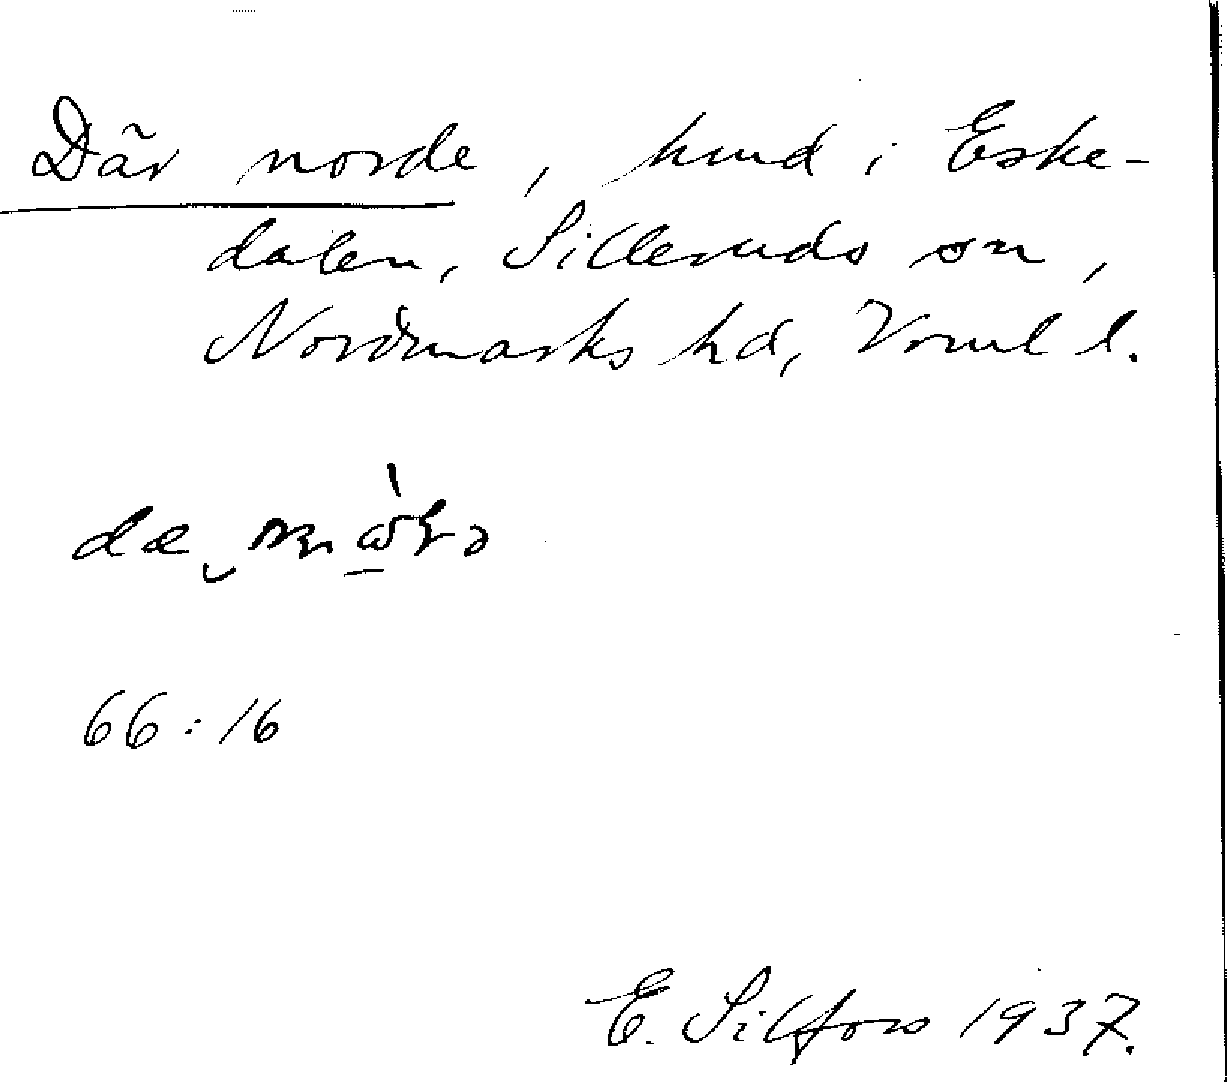 Där norde, hmd i Eske-
dalen, Silleruds sn,
Nordmarks hd, Vrml l.
66:16
E. Silfors 1937.